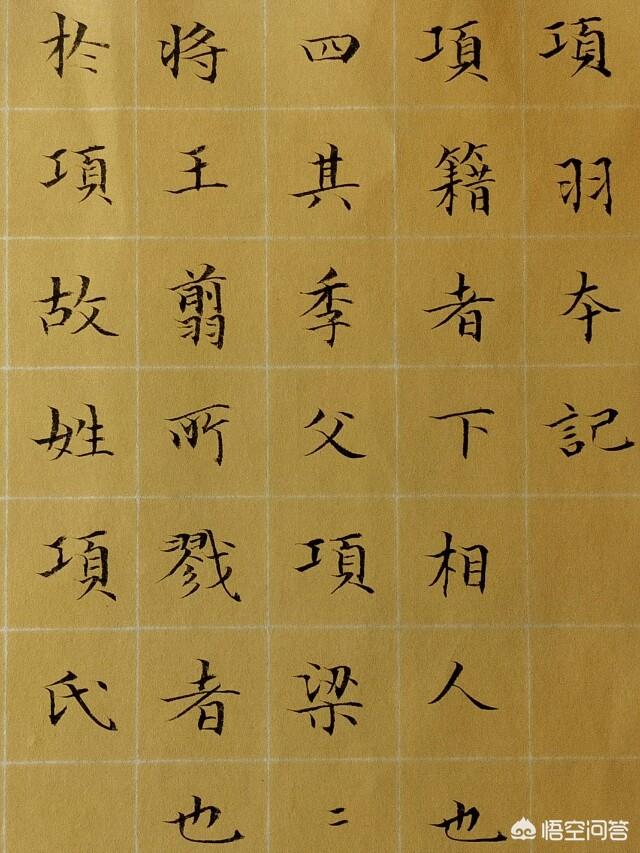 項羽本記
項籍者下相人也
四其季父項梁〻
将王翦所戮者也
於項故姓項氏
悟空问答